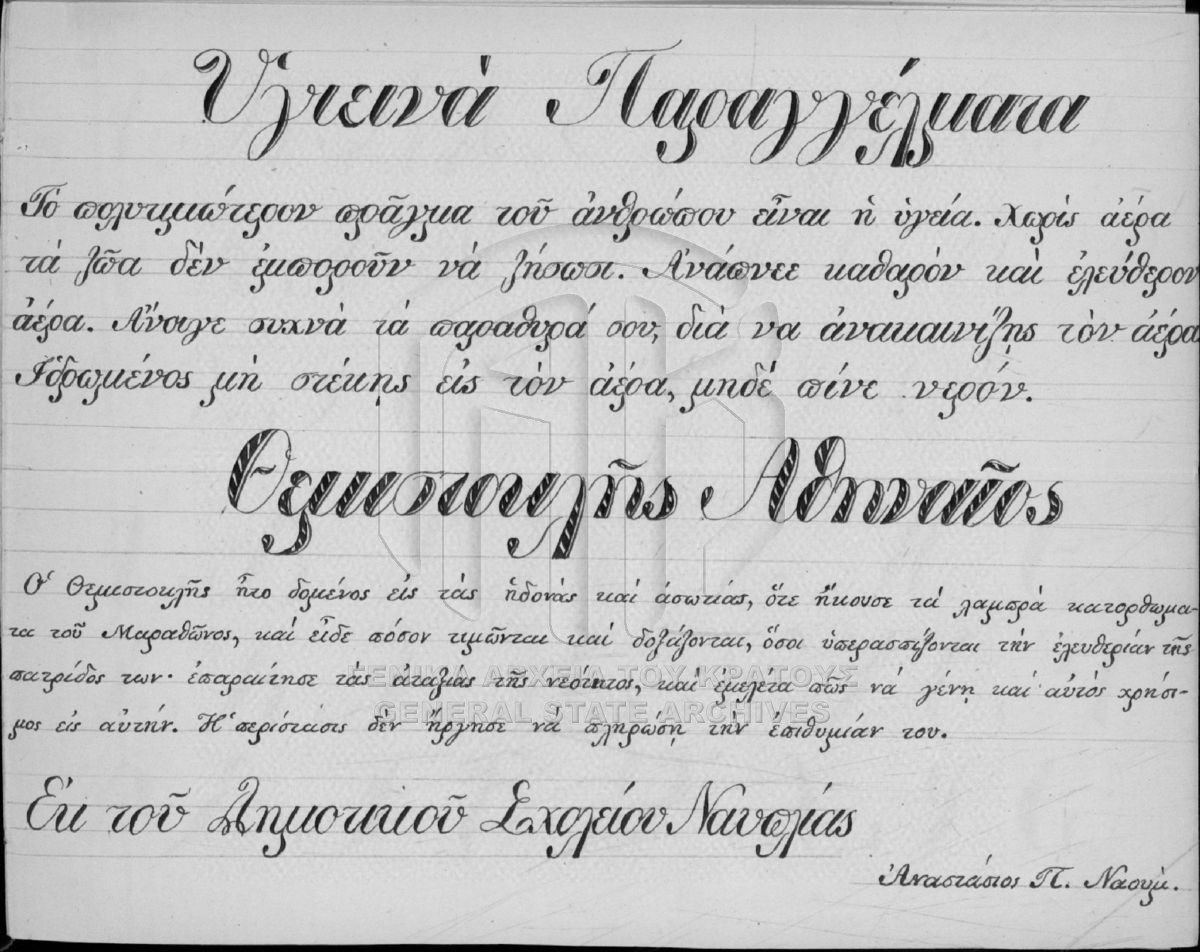 Ὑγιεινὰ Παραγγέλματα
Τὸ πολυτιμώτερον πρᾶγμα τοῦ ἀνθρώπου εἶναι ἡ ὑγεία. Χωρὶς ἀέρα
τὰ ζῶα δὲν ἐμποροῦν νὰ ζήσωσι. Ἀνάπνεε καθαρὸν καὶ ἐλεύθερον
ἀέρα. Ἄνοιγε συχνὰ τὰ παραθυρά σου, διὰ να ἀνακαινίζῃς τὸν ἀέρα
Ἱδρωμένος μὴ στέκῃς εἰς τὸν ἀέρα, μηδὲ πίνε νερόν.
Θεμιστοκλῆς Ἀθηναῖος
Ὁ Θεμιστοκλῆς ἦτο δομένος εἰς τὰς ἡδονὰς καὶ ἀσωτίας, ὅτε ἤκουσε τὰ λαμπρὰ κατορθωμα-
τα τοῦ Μαραθῶνος, καὶ εἶδε πόσον τιμῶνται καὶ δοξάζονται, ὅσοι ὑπερασπίζονται τὴν ἐλευθερίαν τῆς
πατρίδος των· ἐπαραίτησε τὰς ἀταξίας τῆς νεότητος, καὶ ἐμελετα πῶς νὰ γένῃ καὶ αὐτὸς χρήσι-
μος εἰς αὐτήν. Ἡ περίστασις δὲν ἤργησε νὰ πληρώσῃ τὴν ἐπιθυμίαν του.
ΓΕΝΙΚΑ ΑΡΧΕΙΑ ΤΟΥ ΚΡΑΤΟΥΣ
GENERAL STATE ARCHIVES
Ἐκ τοῦ Δημοτικοῦ Σχολείου Ναυπλίας
Ἀναστάσιος Π. Ναουμ.